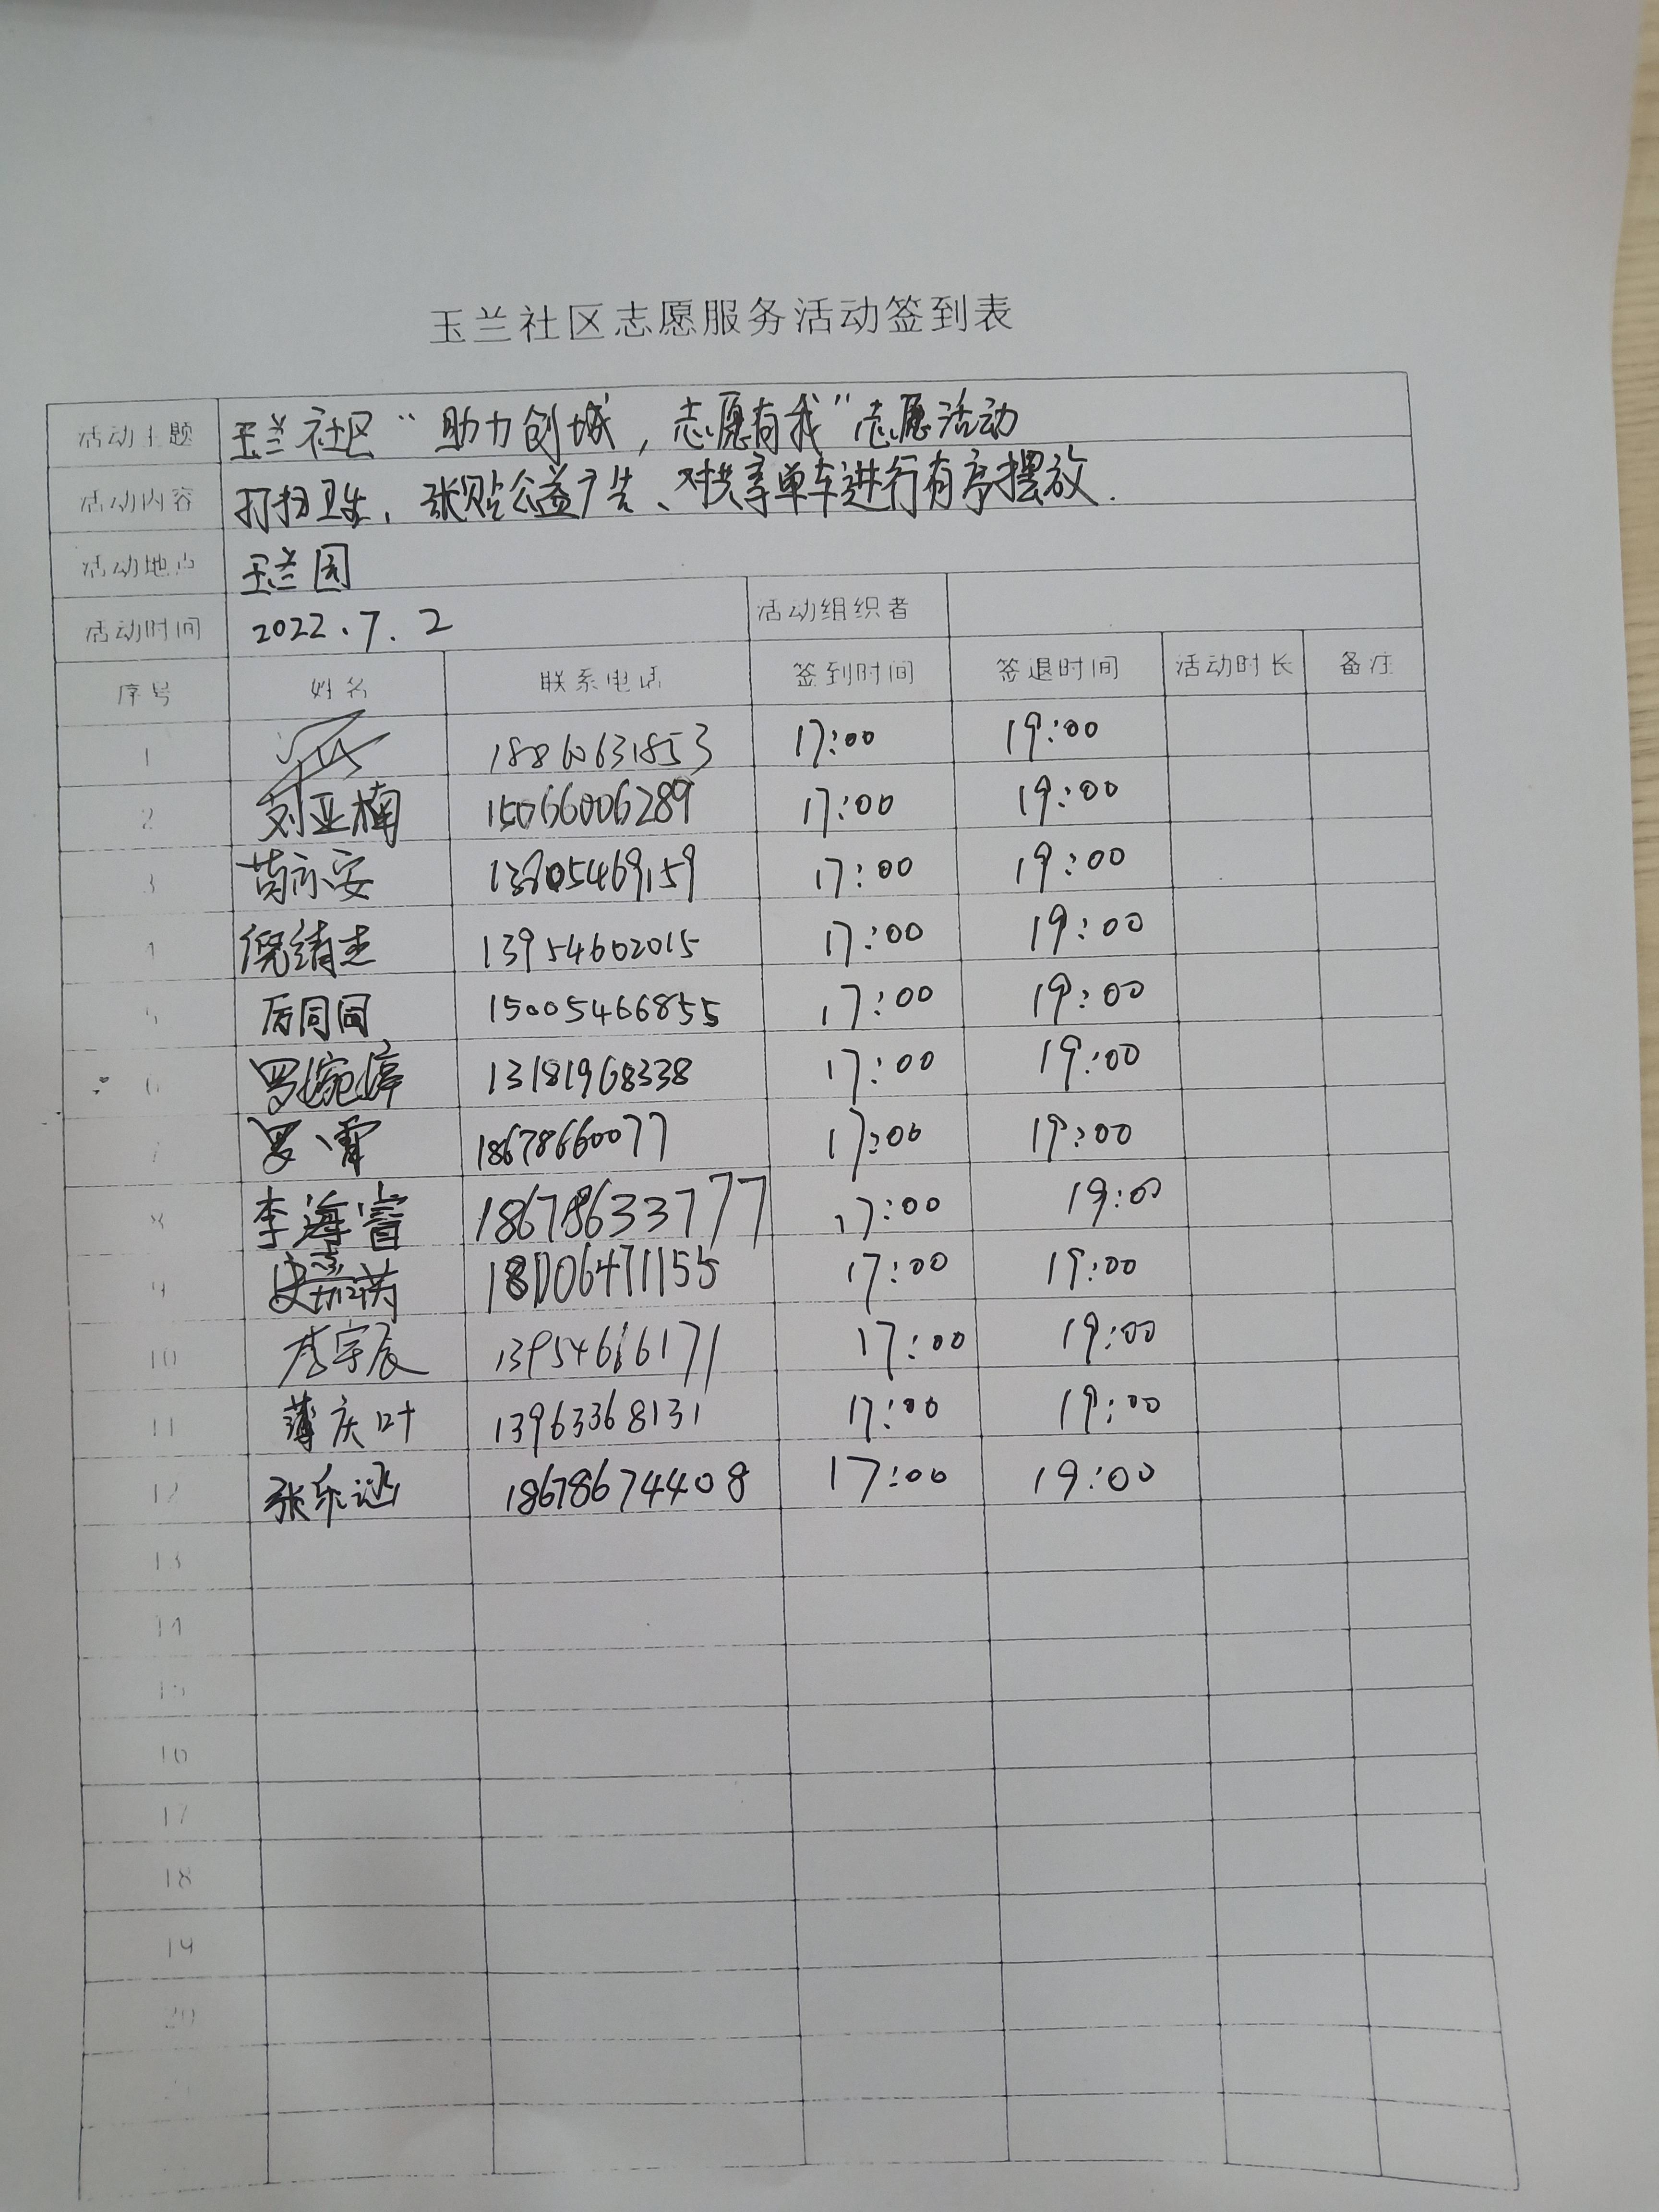 玉兰社区志愿服务活动签到表
活动主题 玉兰社区“助力创城，志愿有我”志愿活动
活动内容 打扫卫生、张贴公益广告、对共享单车进行有序摆放.
活动地点 玉兰园
活动时间 2022.7.2 活动组织者
序号 姓名 联系电话 签到时间 签退时间 活动时长 备注
1 18860631853 17:00 19:00
2 刘亚楠 15066006289 17:00 19:00
3 苗永安 13905469159 17:00 19:00
4 倪靖志 13954602015 17:00 19:00
5 厉同同 15005466855 17:00 19:00
6 罗婉婷 13181968338 17:00 19:00
7 罗霄 18678660077 17:00 19:00
8 李海睿 18678633777 17:00 19:00
9 17:00 19:00
10 宇辰 17:00 19:00
11 薄庆叶 13963368131 17:00 19:00
12 张乐 18678674408 17:00 19:00
13
14
15
16
17
18
19
20
21